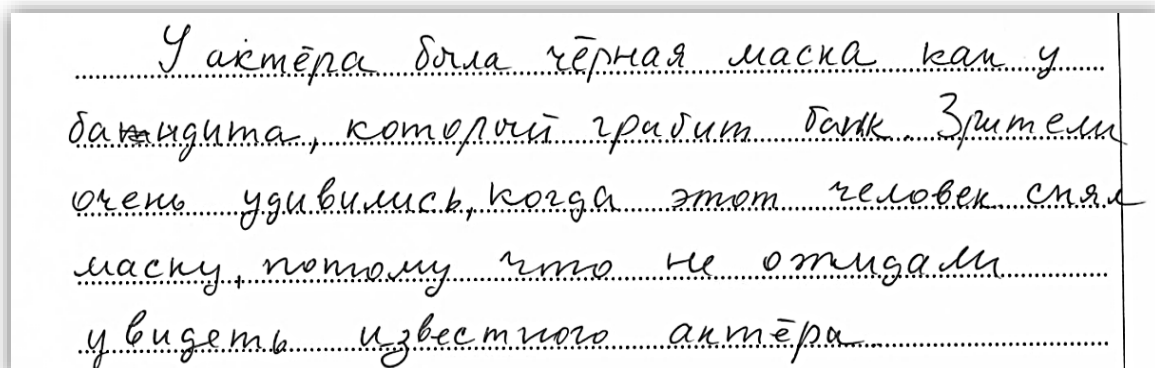 У актёра была чёрная маска как у
бандита, который грабит банк. Зрители
очень удивились, когда этот человек снял
маску, потому что не ожидали
увидеть известного актёра